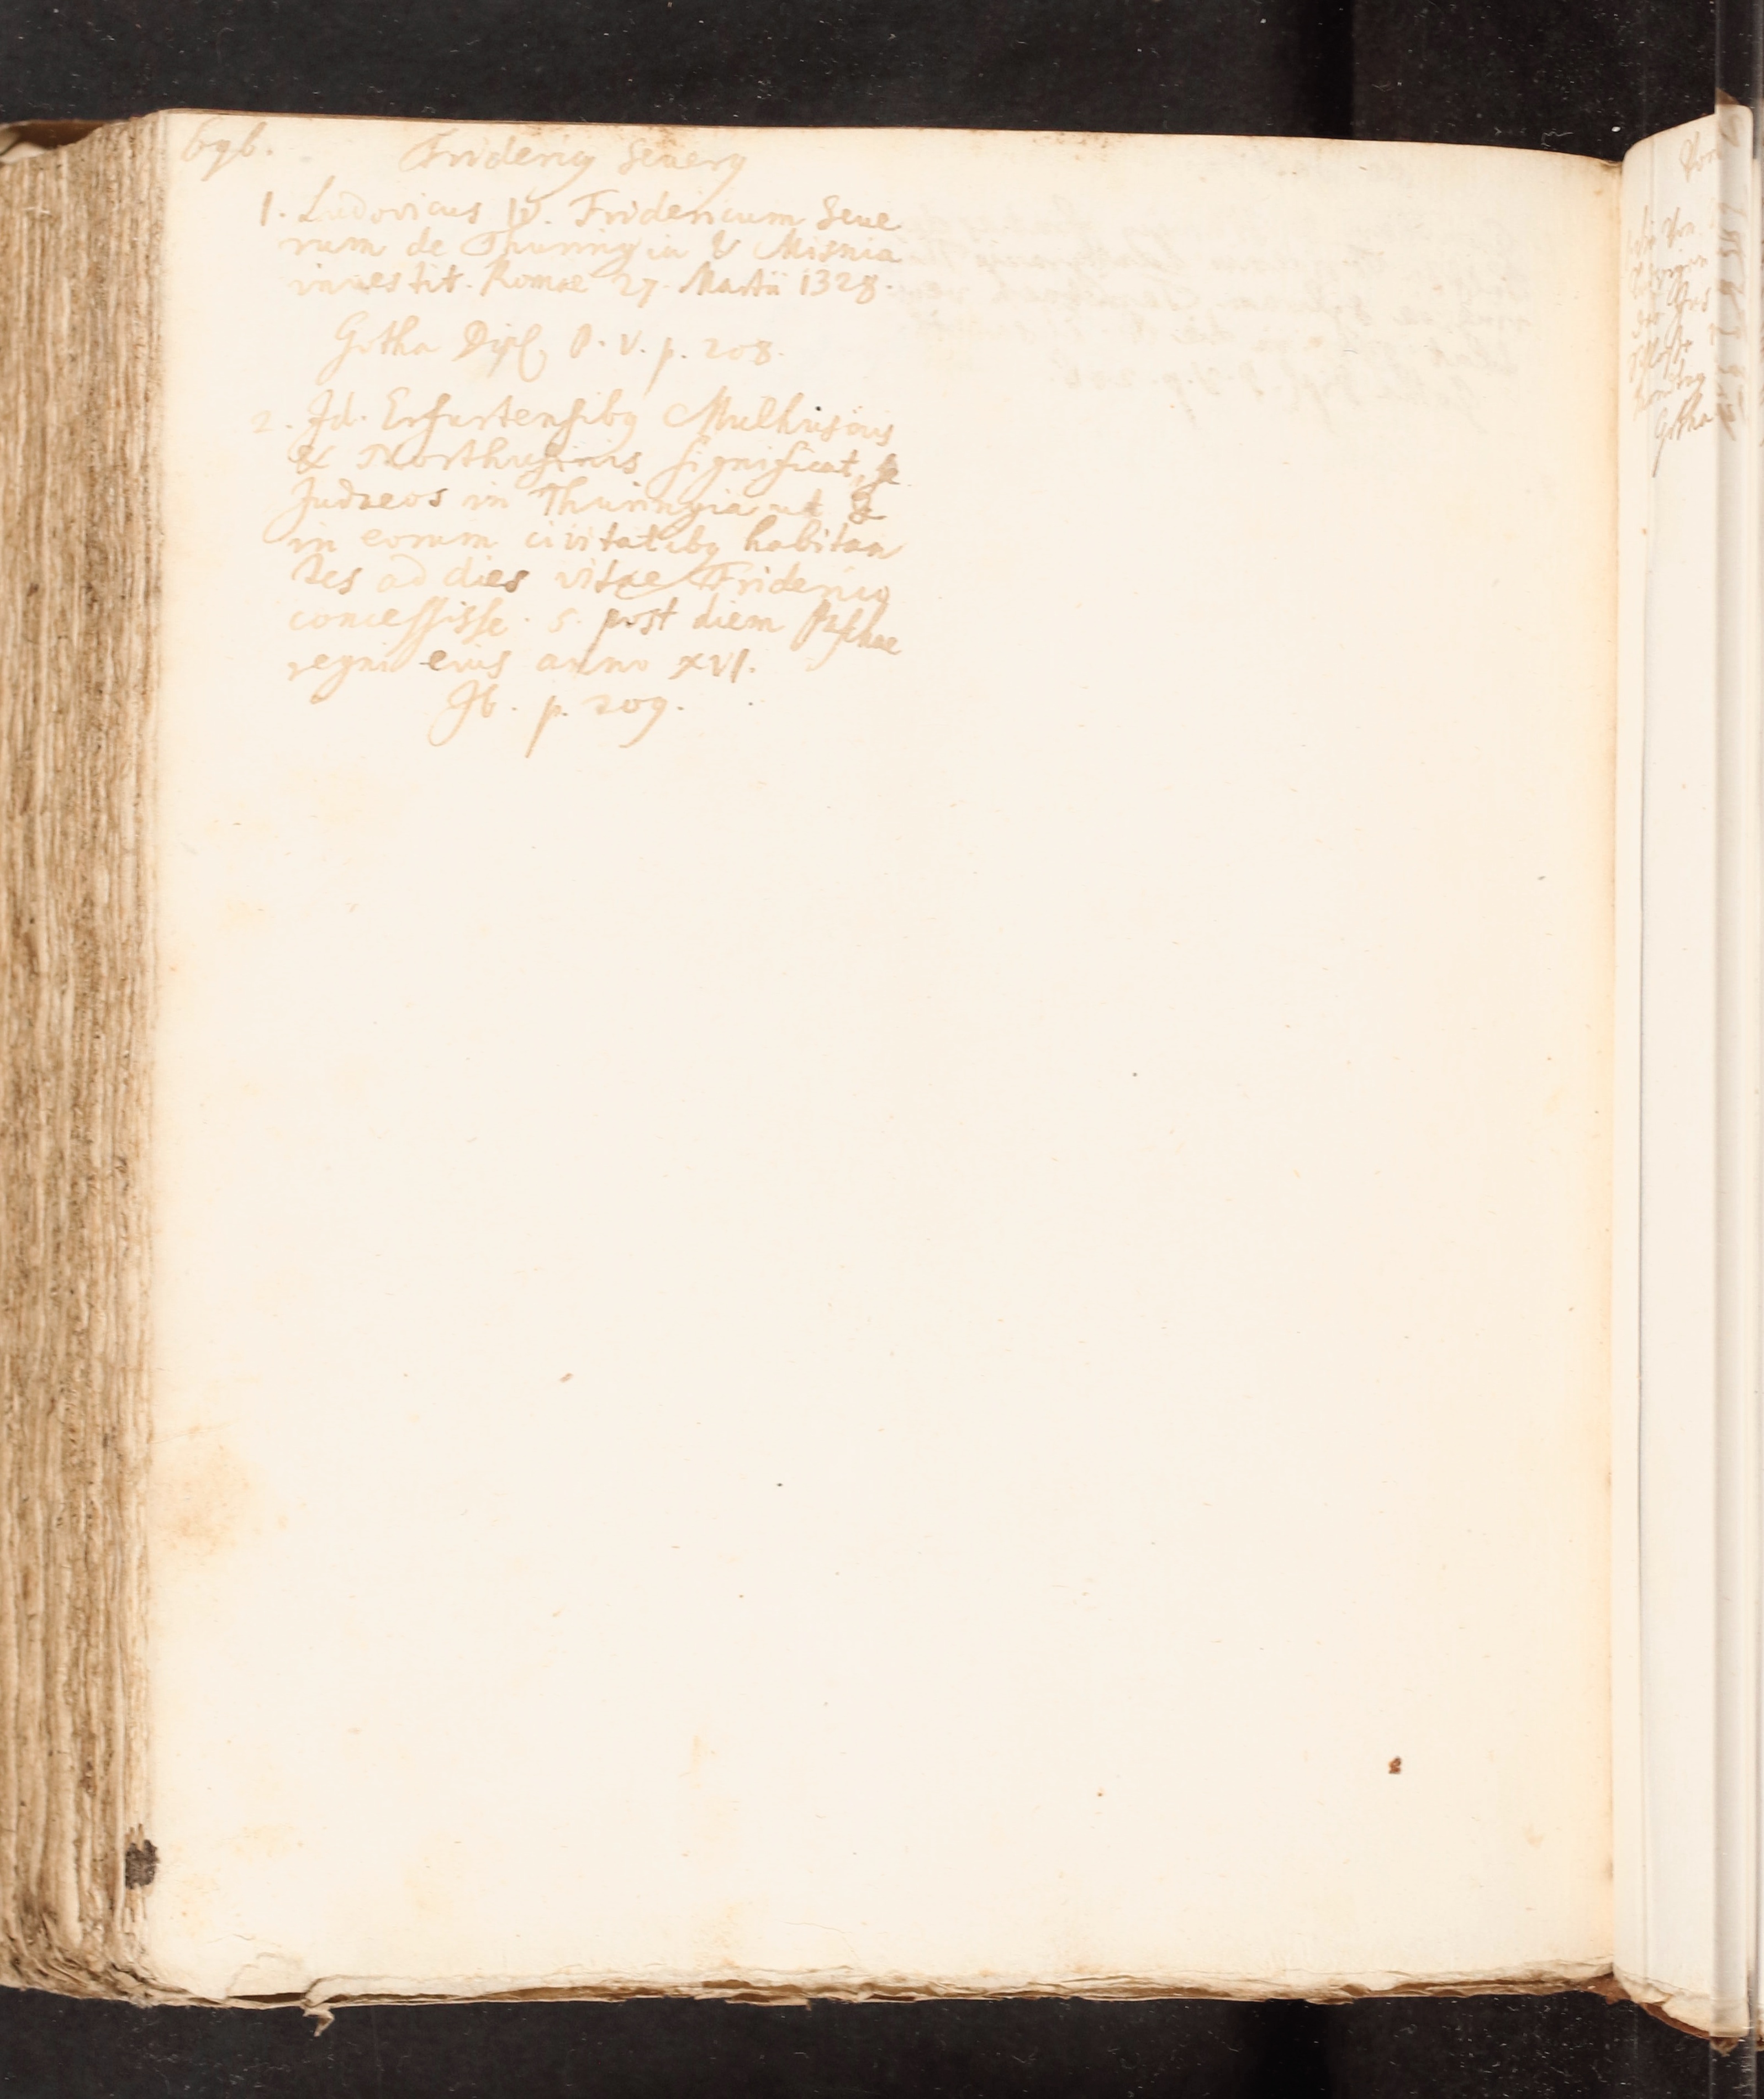 696. Fridericus Severus
1. Ludovicus IV. Fridericum Seve
rum de Thuringia & Misnia
investit. Romae 27. Martii 1328.
Gotha Dipl. P. V. p. 208.
2. Id. Erfurtensibus Mulhusinis
& Northusinis significat, se
Judaeos in Thuringia ut &
in eorum civitatibus habitan
tes ad dies vitae Friderico
concessisse. s. post diem Paschae
regni eius anno XVI.
Ib. p. 209.
Gotha